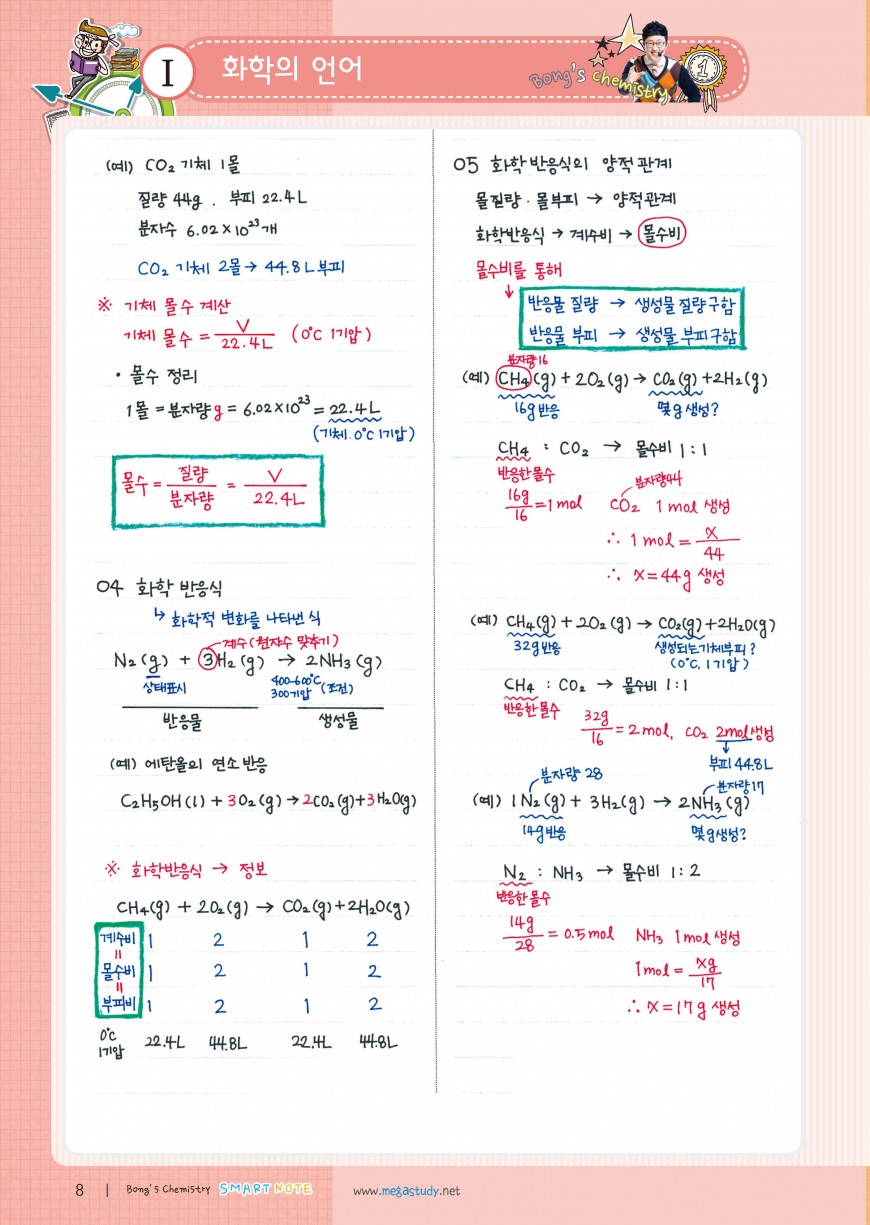 I 화학의 언어
Bong's chemistry
1
(예) CO₂ 기체 1몰
질량 44g . 부피 22.4L
분자수 6.02×10²³개
CO₂ 기체 2몰→ 44.8L부피
※ 기체 몰수 계산
기체 몰수 = V/22.4L (0℃ 1기압)
• 몰수 정리
1몰 = 분자량g = 6.02×10²³ = 22.4L
(기체.0℃ 1기압)
몰수 = 질량/분자량 = V/22.4L
04 화학 반응식
↳ 화학적 변화를 나타낸 식
계수(원자수 맞추기)
N₂(g) + 3H₂(g) → 2NH₃(g)
상태표시
400~600℃
300기압 (조건)
반응물 생성물
(예) 에탄올의 연소 반응
C₂H₅OH(l) + 3O₂(g)→2CO₂(g)+3H₂O(g)
※ 화학반응식 → 정보
CH₄(g) + 2O₂(g) → CO₂(g)+2H₂O(g)
계수비 1 2 1 2
=
몰수비 1 2 1 2
=
부피비 1 2 1 2
0℃
1기압 22.4L 44.8L 22.4L 44.8L
05 화학반응식의 양적관계
몰질량 · 몰부피 → 양적관계
화학반응식 → 계수비 → 몰수비
몰수비를 통해
↓
반응물 질량 → 생성물 질량구함
반응물 부피 → 생성물 부피구함
분자량16
(예) CH₄(g) + 2O₂(g) → CO₂(g)+2H₂(g)
16g반응 몇g생성?
CH₄ : CO₂ → 몰수비 1:1
반응한몰수
분자량44
16g/16 = 1mol CO₂ 1mol 생성
∴ 1mol = x/44
∴ x=44g 생성
(예) CH₄(g) + 2O₂(g) → CO₂(g)+2H₂O(g)
32g반응 생성되는기체부피?
(0℃, 1기압)
CH₄ : CO₂ → 몰수비 1:1
반응한몰수
32g/16 = 2mol, CO₂ 2mol생성
↓
부피44.8L
분자량 28 분자량17
(예) 1N₂(g)+ 3H₂(g) → 2NH₃(g)
14g반응 몇g생성?
N₂ : NH₃ → 몰수비 1:2
반응한몰수
14g/28 = 0.5mol NH₃ 1mol 생성
1mol = xg/17
∴ x=17g 생성
8 | Bong's Chemistry SMART NOTE www.megastudy.net